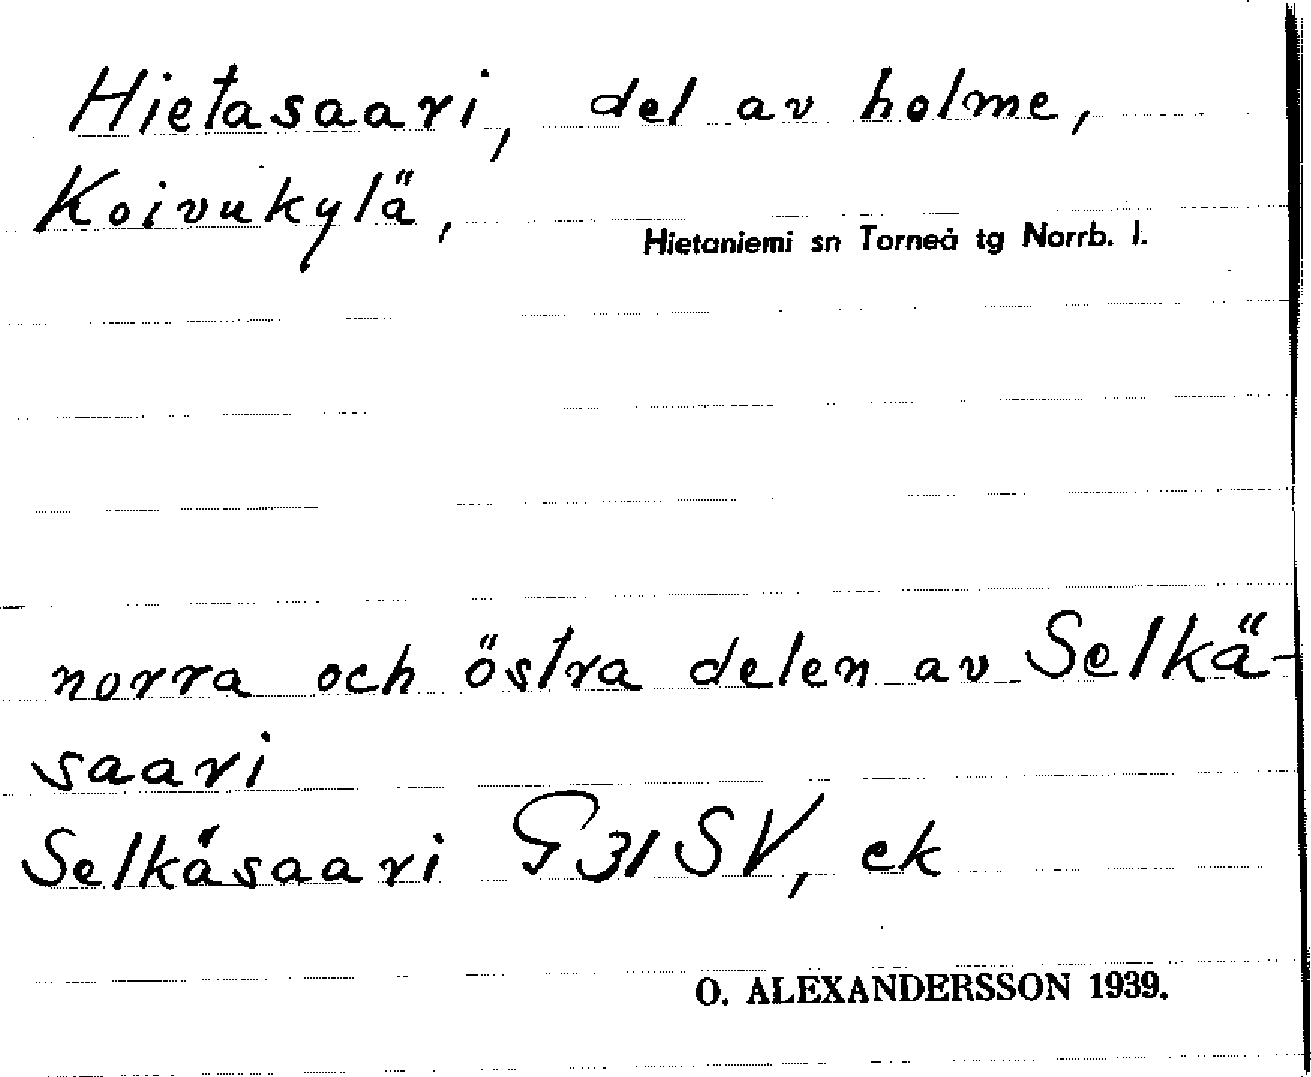 Hietasaari, del av holme,
Koivukylä,
Hietaniemi sn Torneå tg Norrb. l.
norra och östra delen av Selkä-
saari
Selkäsaari G31SV, ek
O. ALEXANDERSSON 1939.